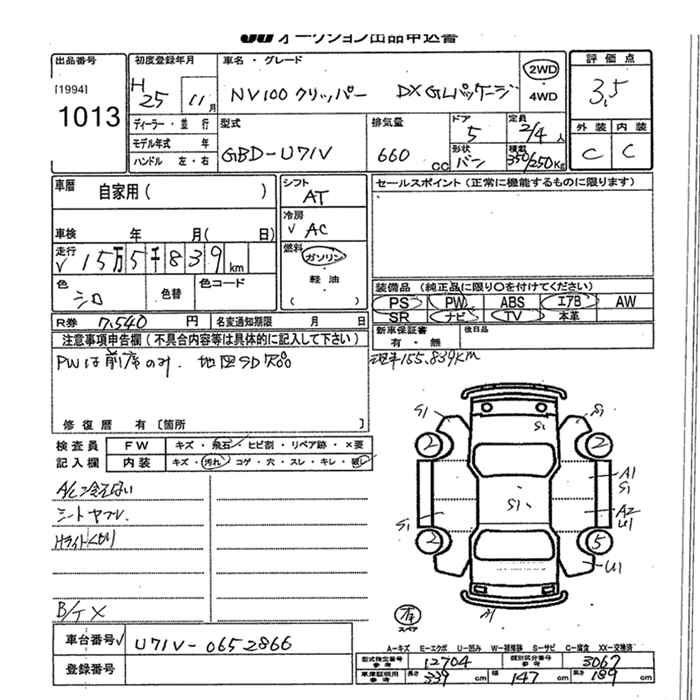 JU オークション出品申込書
出品番号 初度登録年月 車名・グレード 評価点
[1994] H 25 11月 NV100 クリッパー DX GLパッケージ 2WD 4WD 3.5
1013
ディーラー・並行 型式 排気量 ドア 5 定員 2/4人 外装 内装
モデル年式 年 GBD-U71V 660cc 形状 バン 積載 350/250Kg C C
ハンドル 左・右
車暦 自家用( ) シフト AT セールスポイント(正常に機能するものに限ります)
冷房 AC
車検 年 月( 日)
走行 15万5千839km 燃料 ガソリン 軽油 ( )
色 シロ 色替 色コード 装備品(純正品に限り○を付けてください)
PS PW ABS エアB AW
SR ナビ TV 本革
R券 7,540円 名変通知期限 月 日 新車保証書 有・無 後日品
注意事項申告欄(不具合内容等は具体的に記入して下さい)
PWは前席のみ. 地図SD欠品 155,839km
修復歴 有[箇所 ]
検査員 FW キズ・飛石・ヒビ割・リペア跡・×要
記入欄 内装 キズ・汚れ・コゲ・穴・スレ・キレ・
A/C冷えない
シートヤブレ
Hライトくもり
B/T X
S1 S1 S2
2 2
S1 A1 S1
S1 A2 U1
2 5
U1
A1
スペア
車台番号 U71V-0652866
登録番号
A-キズ E-エクボ U-凹み W-補修跡 S-サビ C-腐食 XX-交換済
型式指定番号 参考 12704 類別区分番号 参考 3067
車庫証明用 参考 長さ 339cm 幅 147cm 高さ 189cm